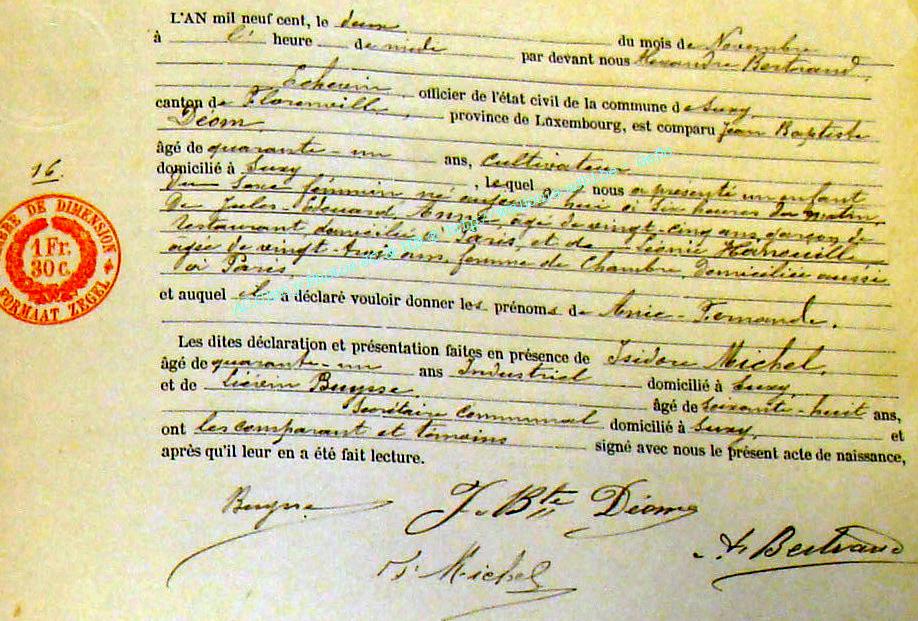 L'AN mil neuf cent, le deux du mois de Novembre
à l' heure de midi par devant nous Alexandre Bertrand,
Echevin, officier de l'état civil de la commune de Suxy,
canton de Florenville, province de Luxembourg, est comparu Jean Baptiste
Déom,
âgé de quarante-un ans, Cultivateur
domicilié à Suxy, lequel nous a présenté un enfant
du sexe féminin né aujourd'hui à six heures du matin,
De Jules Edouard âgé de vingt-cinq ans, garçon de
restaurant domicilié à Paris, et de
agée de vingt-trois ans, femme de Chambre, domiciliée aussi
à Paris
et auquel il a déclaré vouloir donner les prénoms de Anie-Fernande.
Les dites déclaration et présentation faites en présence de Isidore Michel,
âgé de quarante-un ans Industriel domicilié à Suxy,
et de Buysse âgé de soixante-huit ans,
Secrétaire Communal domicilié à Suxy, et
ont les comparant et témoins signé avec nous le présent acte de naissance,
après qu'il leur en a été fait lecture.
16.
TIMBRE DE DIMENSION
1 Fr.
30 C.
FORMAAT ZEGEL
Buysse
J. Bte Déom
Is. Michel
A. Bertrand